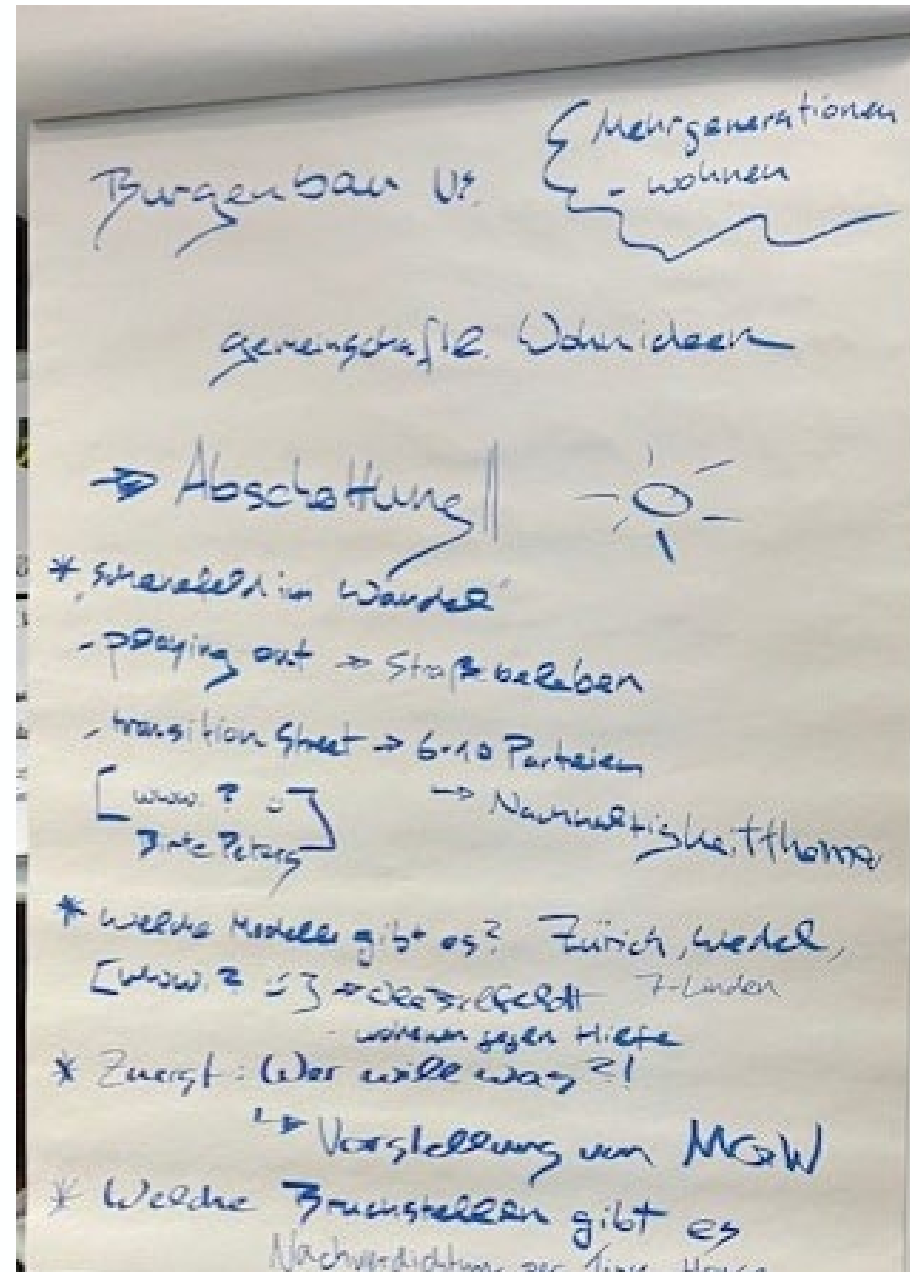 Burgenbau vs.
Mehrgenerationen
- wohnen
gemeinschaftl. Wohnideen
→ Abschottung
* im Wandel"
- playing out → Straße beleben
- transition Street → 6-10 Parteien
→ Nachhaltigkeitthema
[www. ? :)
Peters]
* Welche Modelle gibt es? Zürich, Wedel,
[www. ? :)] → 7-Linden
- wohnen gegen Hilfe
* Zuerst: Wer will was?!
↳ Vorstellung von MGW
* Welche Bruchstellen gibt es
Nachverdichtung per Tiny House